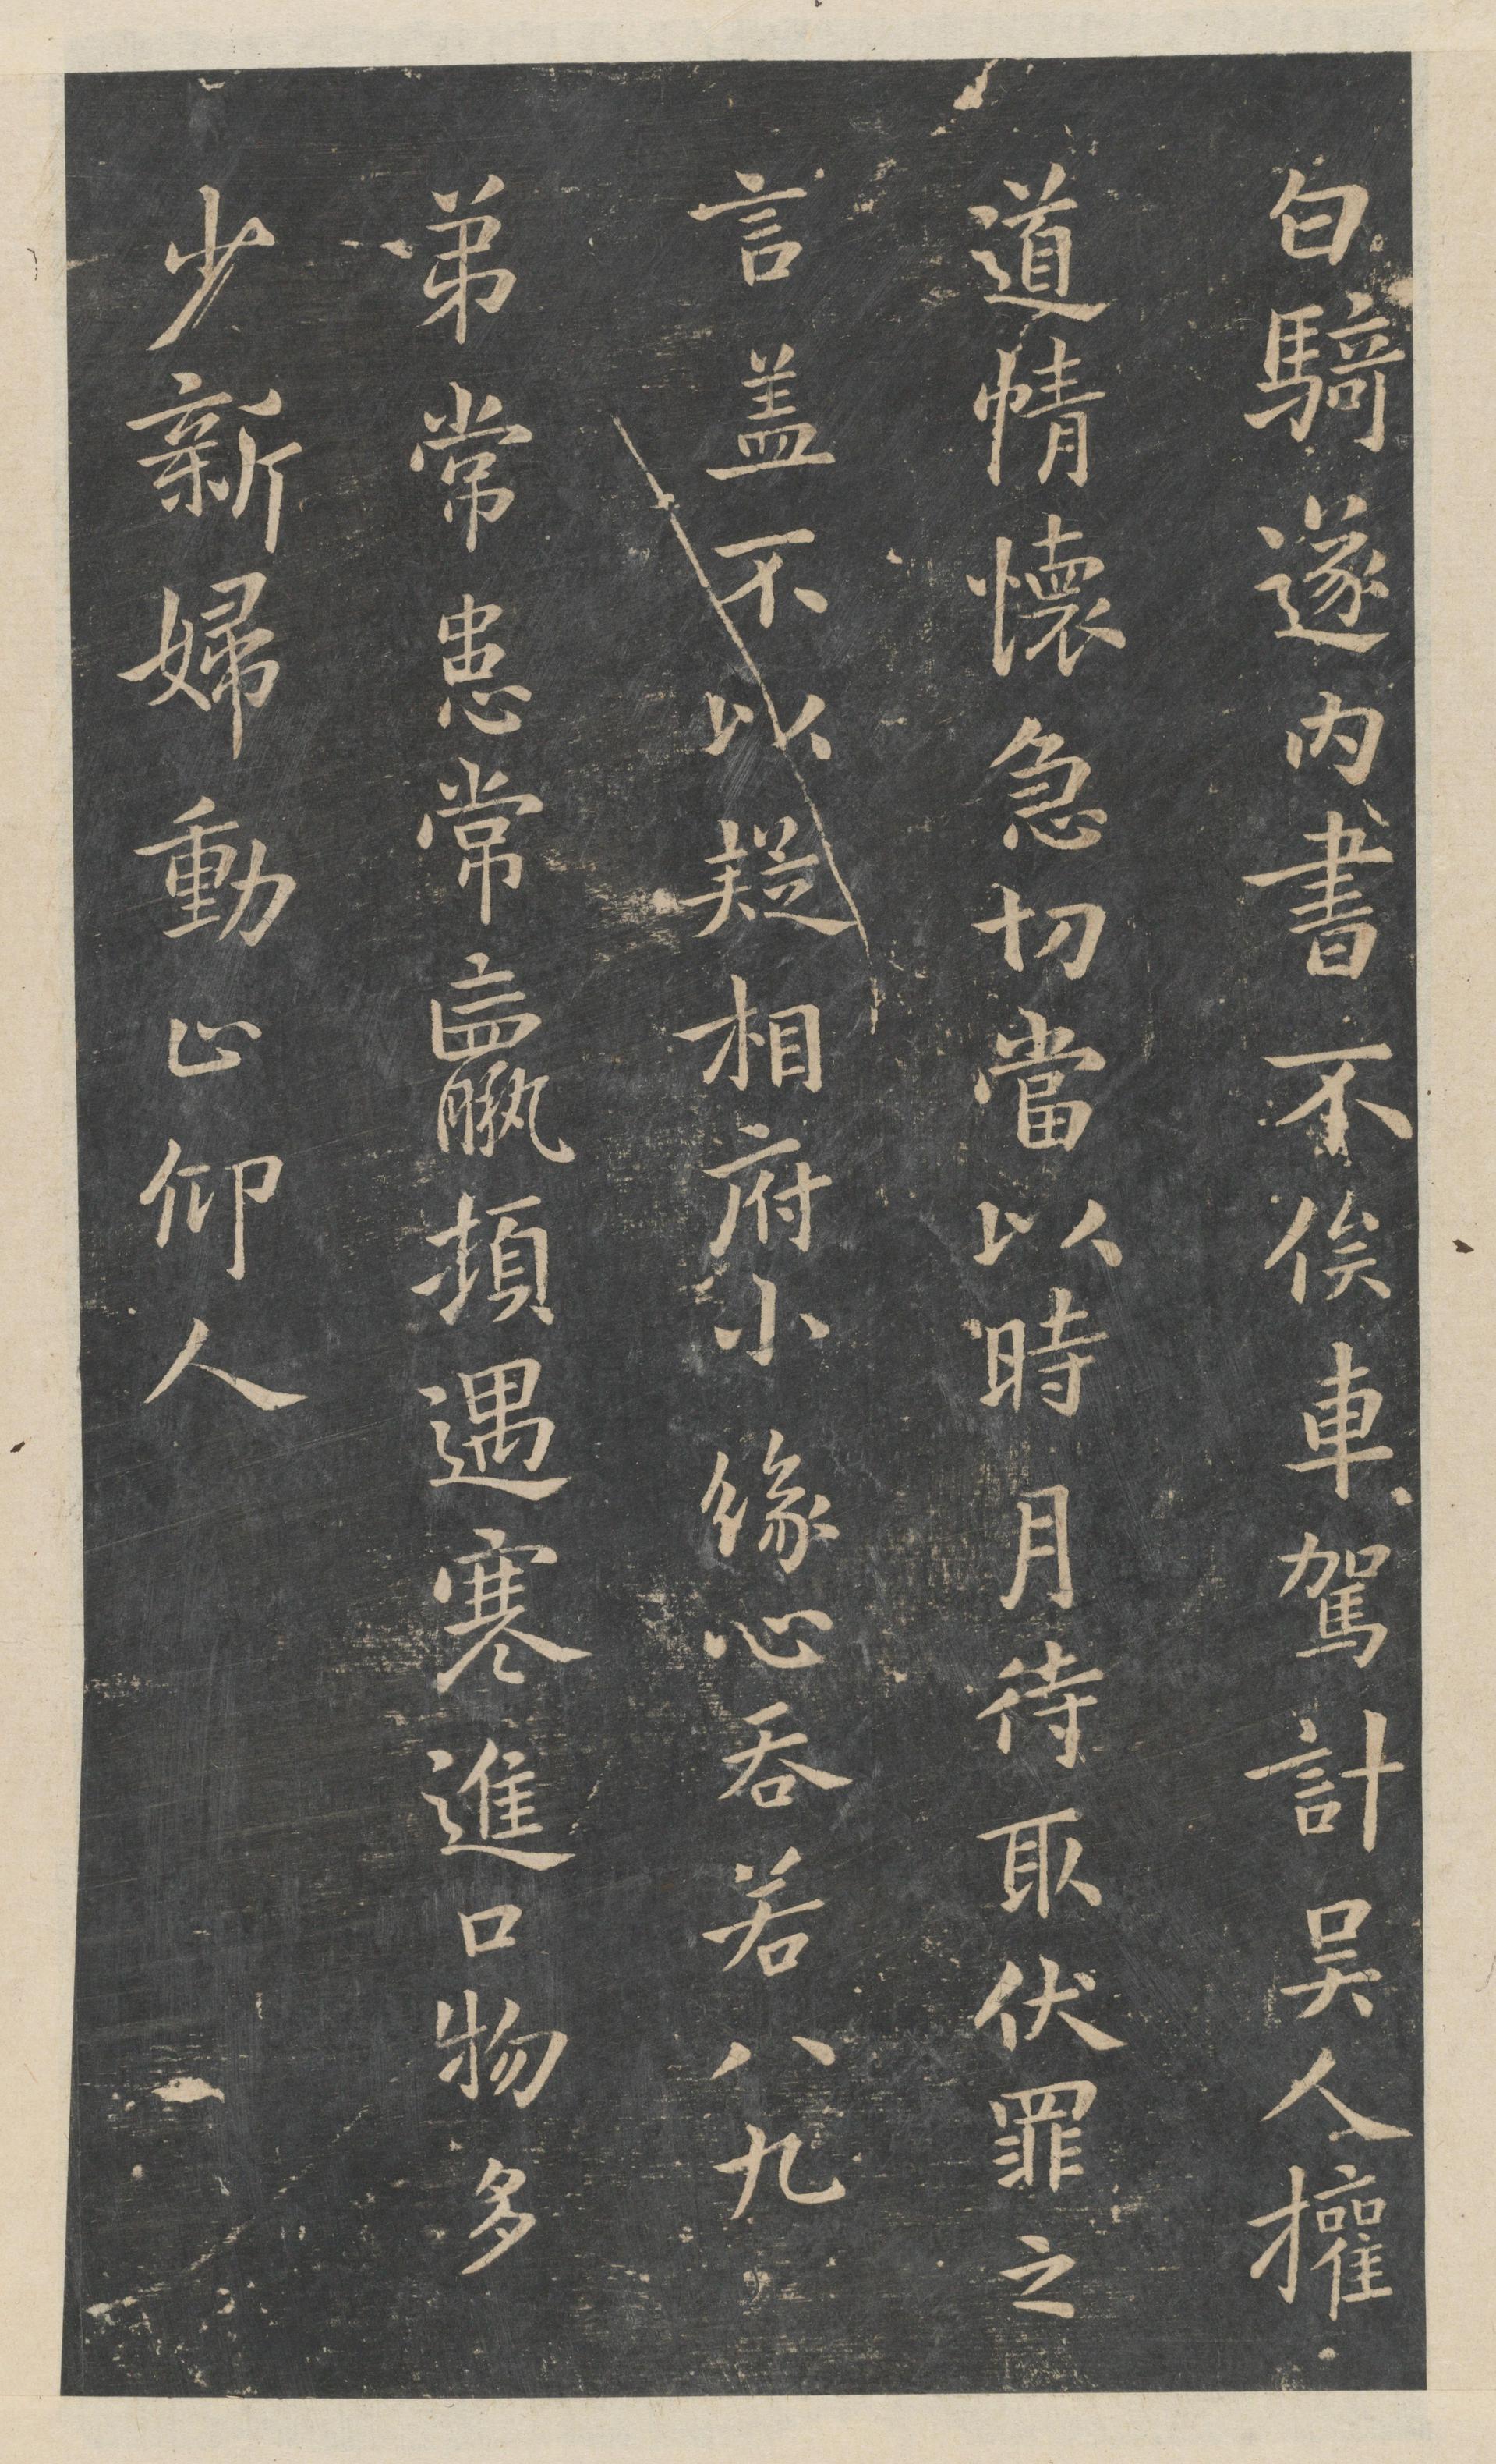 白騎遂內書不俟車駕計吳人權
道情懷急切當以時月待取伏罪之
言盖不以疑相府小緣心吞若八九
弟常患常羸頓遇寒進口物多
少新婦動止仰人